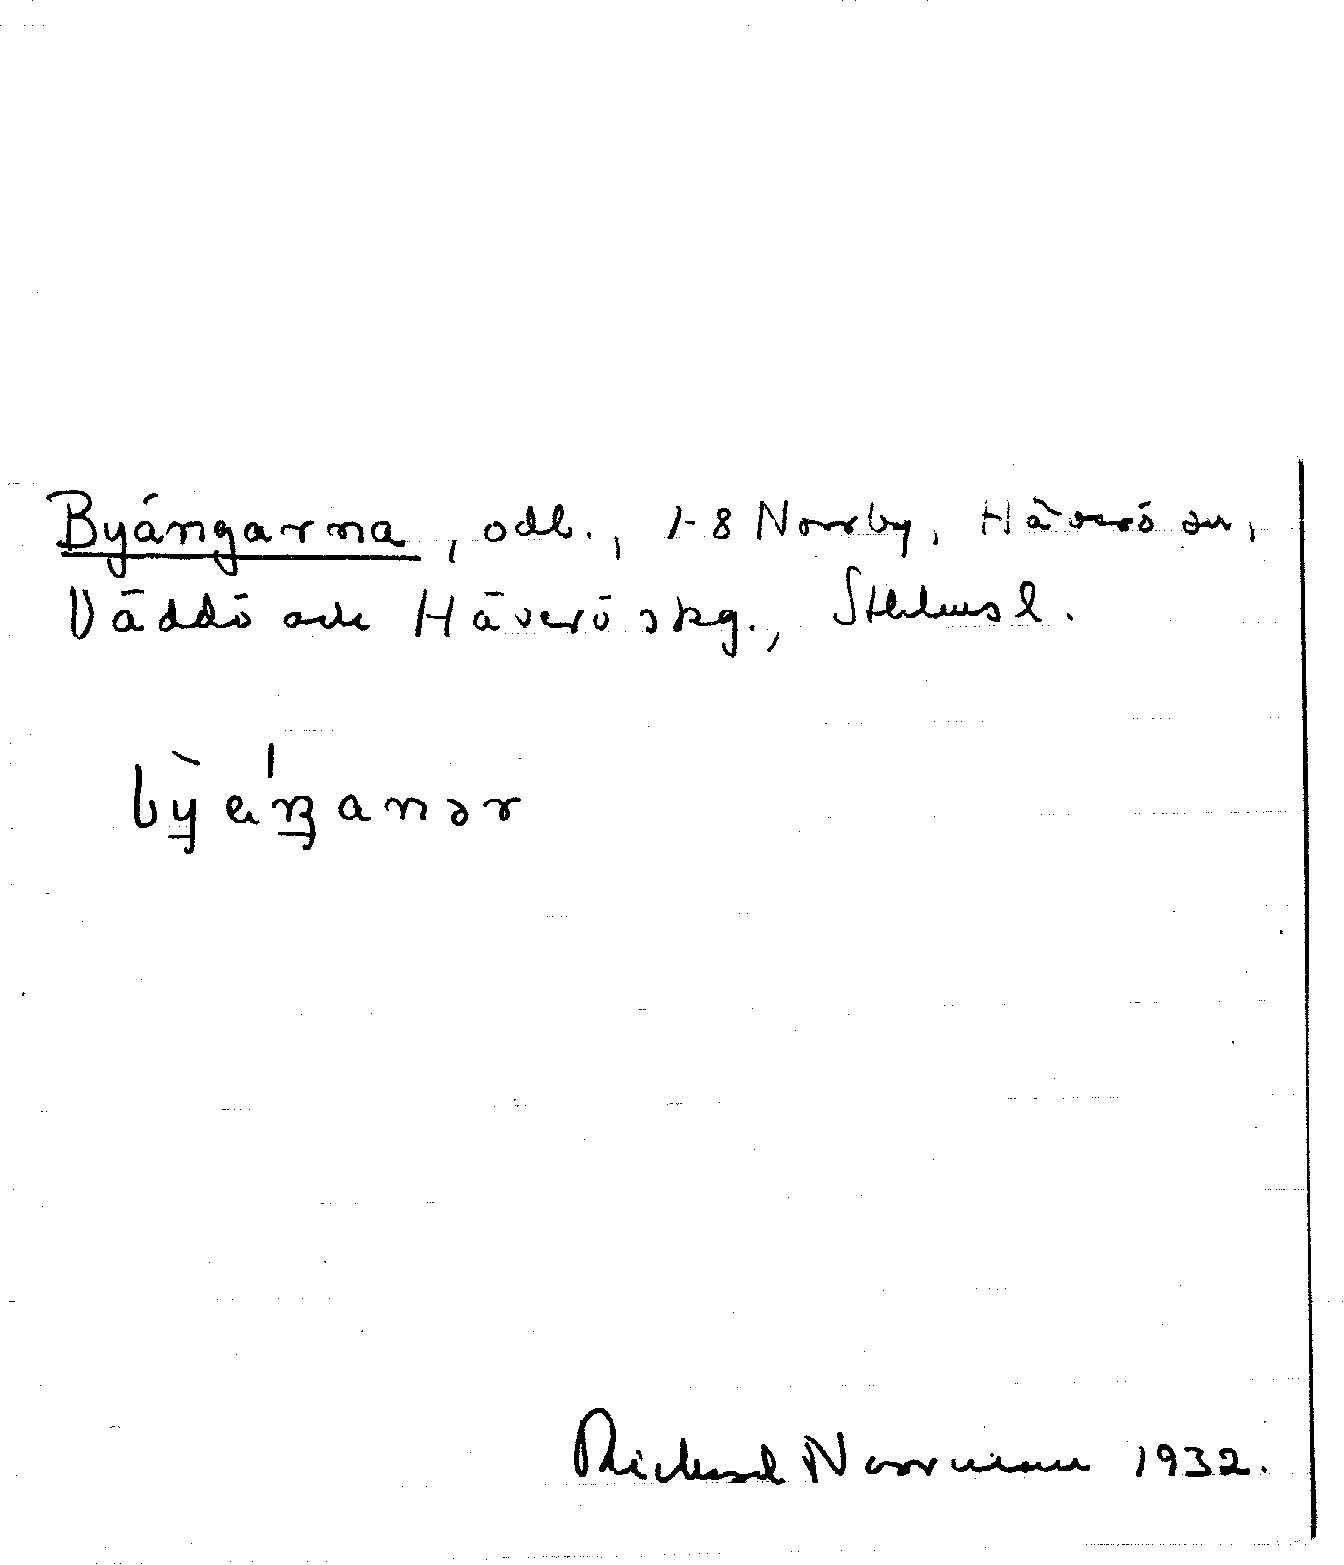 Byängarna, odl., 1-8 Norrby, Häverö sn,
Väddö och Häverö skg., Sthlms l.
Richard Norrman 1932.